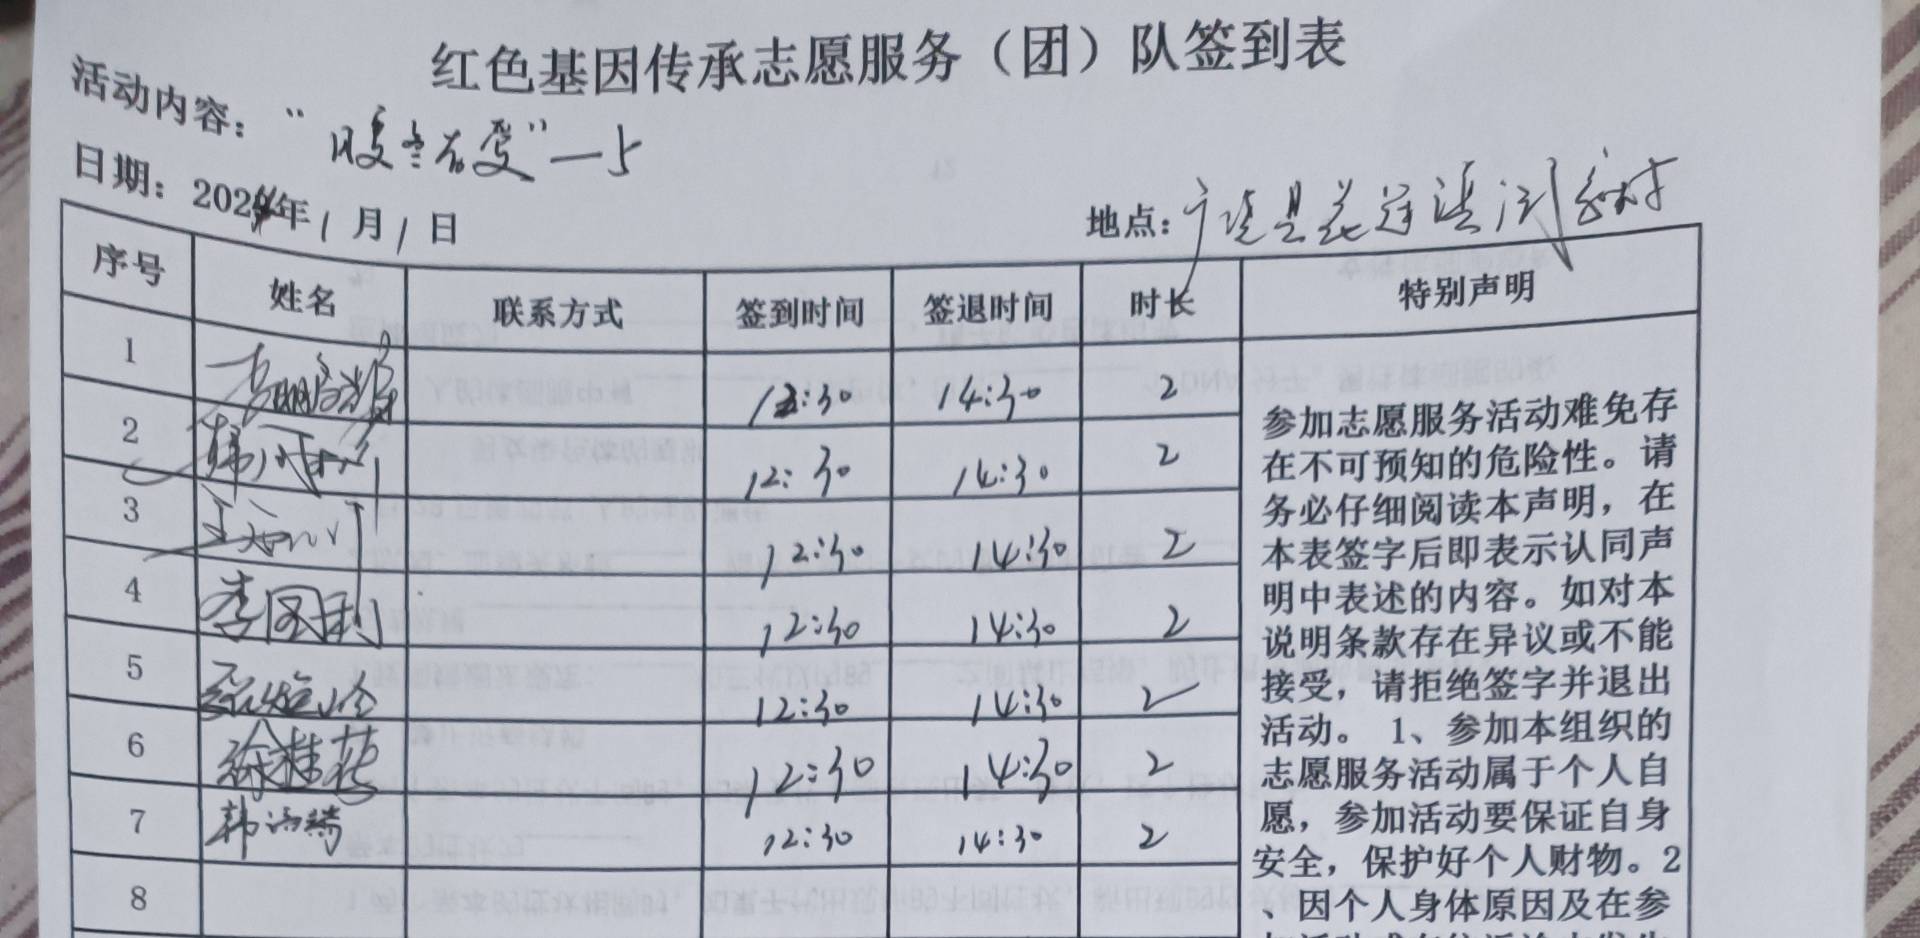 红色基因传承志愿服务（团）队签到表
活动内容：“暖冬有爱”—5
日期：2024年1月1日
地点：
序号 姓名 联系方式 签到时间 签退时间 时长 特别声明
1 12:30 14:30 2
2 12:30 14:30 2
3 12:30 14:30 2
4 李图利 12:30 14:30 2
5 12:30 14:30 2
6 徐桂花 12:30 14:30 2
7 韩 12:30 14:30 2
8
参加志愿服务活动难免存
在不可预知的危险性。请
务必仔细阅读本声明，在
本表签字后即表示认同声
明中表述的内容。如对本
说明条款存在异议或不能
接受，请拒绝签字并退出
活动。 1、参加本组织的
志愿服务活动属于个人自
愿，参加活动要保证自身
安全，保护好个人财物。2
、因个人身体原因及在参